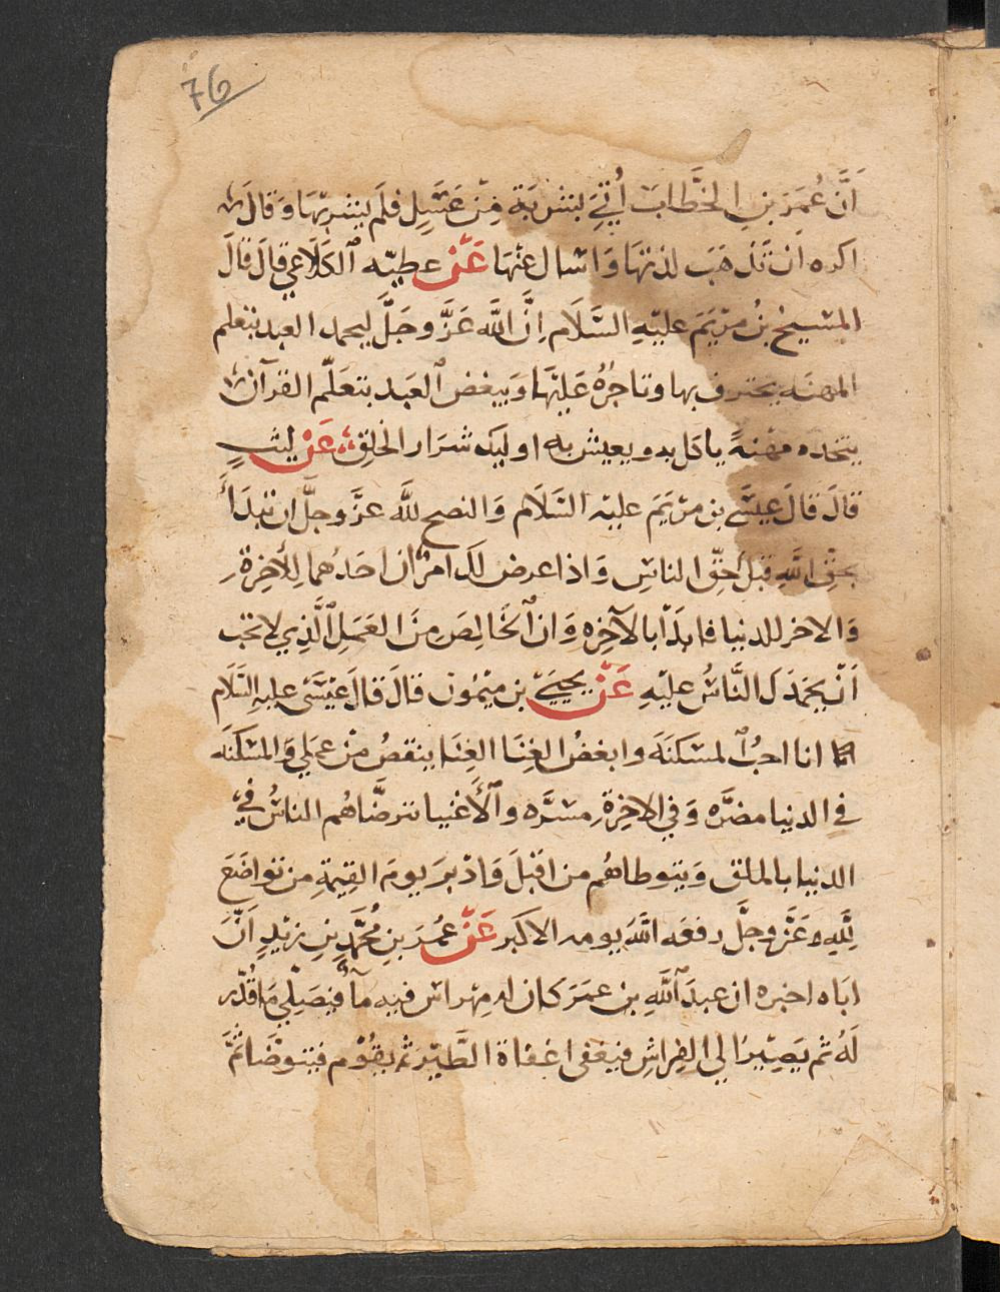 76
أَنَّ عُمَرَ بنِ الخَطَّابَ أُتِيَ بشربَة مِنْ عَسَلِ فلَم يشربّهَا وَقالَ
اكره ان تَذهَبَ لذتهَا وَاسال عنْهَا عَنْ عطيّه الكَلَاعي قالَ قالَ
المسيحُ بنُ مرْيَمَ عليْهِ السَّلَام اِنَّ اللَّه عَزَّ وجَلَّ ليحمد العبد يتعلم
المهنَه يحترف بها وتاجرُهُ عَليْهَا وَيبغض العَبد يتعَلّم القرآن
يتخده مهْنهً ياكل به ويعيش به اوليك شرَار الخلق عَنْ ليثٍ
قالَ قالَ عيسَى بن مَرْيَمَ عليْه السَّلَام وَالنصح للَّه عزَّ وجلَّ ان تبدَأ
بحقِّ اللَّهِ قبْل حَقّ الناسِ وَاذا عرض لك امرَان احَدُهُما لِلْاخِرَةِ
وَالاخر للدنيا فابدَأ بالآخِرهِ وَان الخَالِصَ منَ العَمَلِ الَّذِي لا تحب
اَنْ يحمَدَكَ النَّاسُ عليْهِ عَنْ يحيَى بن ميْمُون قالَ قالَ عيْسَى عليه السَّلَام
انا احبُ المسكنَهَ وابغضُ الغِنَا الغِنَا ينقصُ منْ عمَلي وَالمسْكنَه
في الدنيا مضرَّه وَفي الاخِرَةِ مسَرَّه والأغنيا تترضَّاهُم الناسُ في
الدنيا بالملق وَيتوطاهُم من اقبَلَ وَادْبرَ يومَ القِيمَةِ من تواضَعَ
لِلَّهِ عَزَّ وجلَّ رفعَه اللَّه يومه الاكبر عَنْ عُمرَ بنِ مُحَمَّدٍ بنِ زيْدٍ اَنَّ
ابَاه اخبره ان عبدَ اللَّهِ بن عمَرَ كان له مِهراس فيه مآءُ فيُصَلي مَا قُدّرَ
لَهُ ثم يَصِيْرُ الى الفِراشِ فيَغفى اغفاة الطَّيْر ثم يقُوْم فيتوضَّا ثمَّ